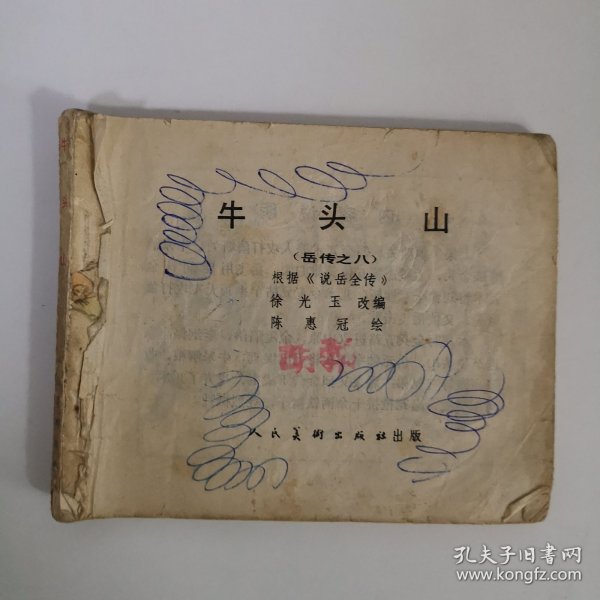 牛头山
牛头山
（岳传之八）
根据《说岳全传》
徐光玉改编
陈惠冠绘
人民美術出版社出版
孔夫子旧书网
www.kongfz.com